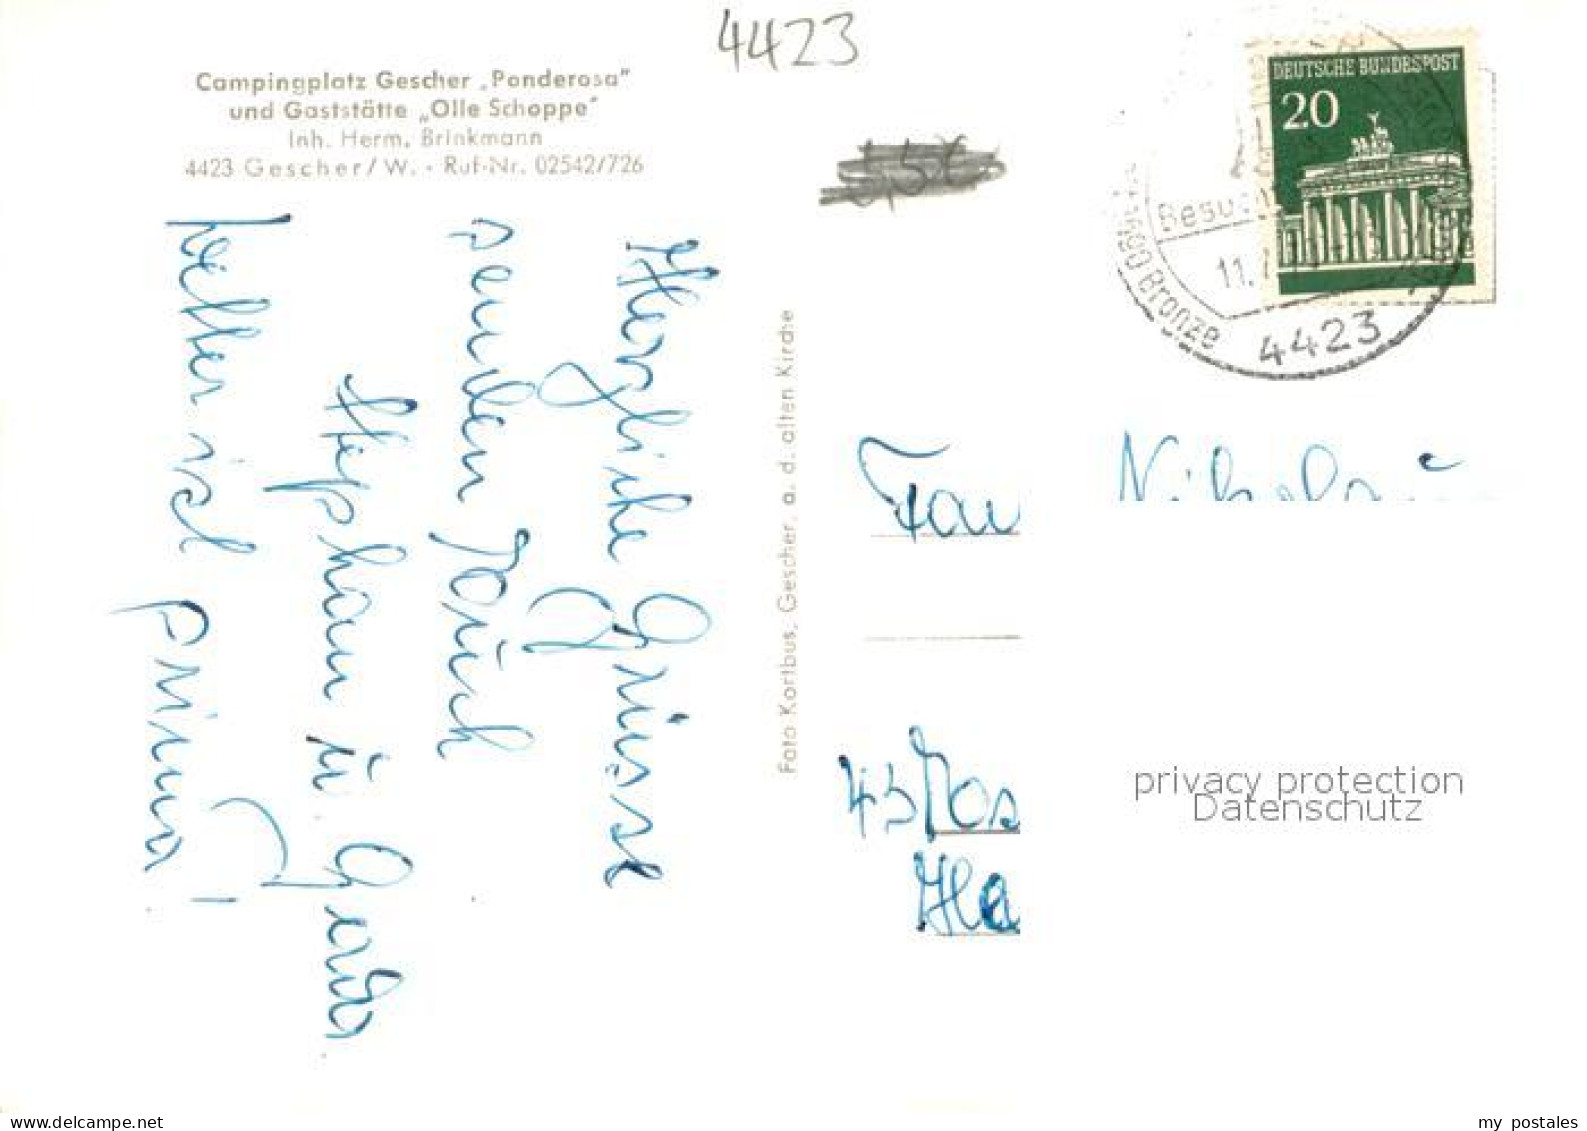 4423
Campingplatz Gescher „Ponderosa"
und Gaststätte „Olle Schoppe"
Inh. Herm. Brinkmann
4423 Gescher/W. - Ruf-Nr. 02542/726
Herzliche Grüsse
senden Euch
Stephan u. Gerda
Wetter ist prima!
Foto Kortbus, Gescher, a. d. alten Kirche
DEUTSCHE BUNDESPOST
20
11.
Bronze
4423
Fam
Nikolau
43
Ha
privacy protection
Datenschutz
www.delcampe.net
my_postales